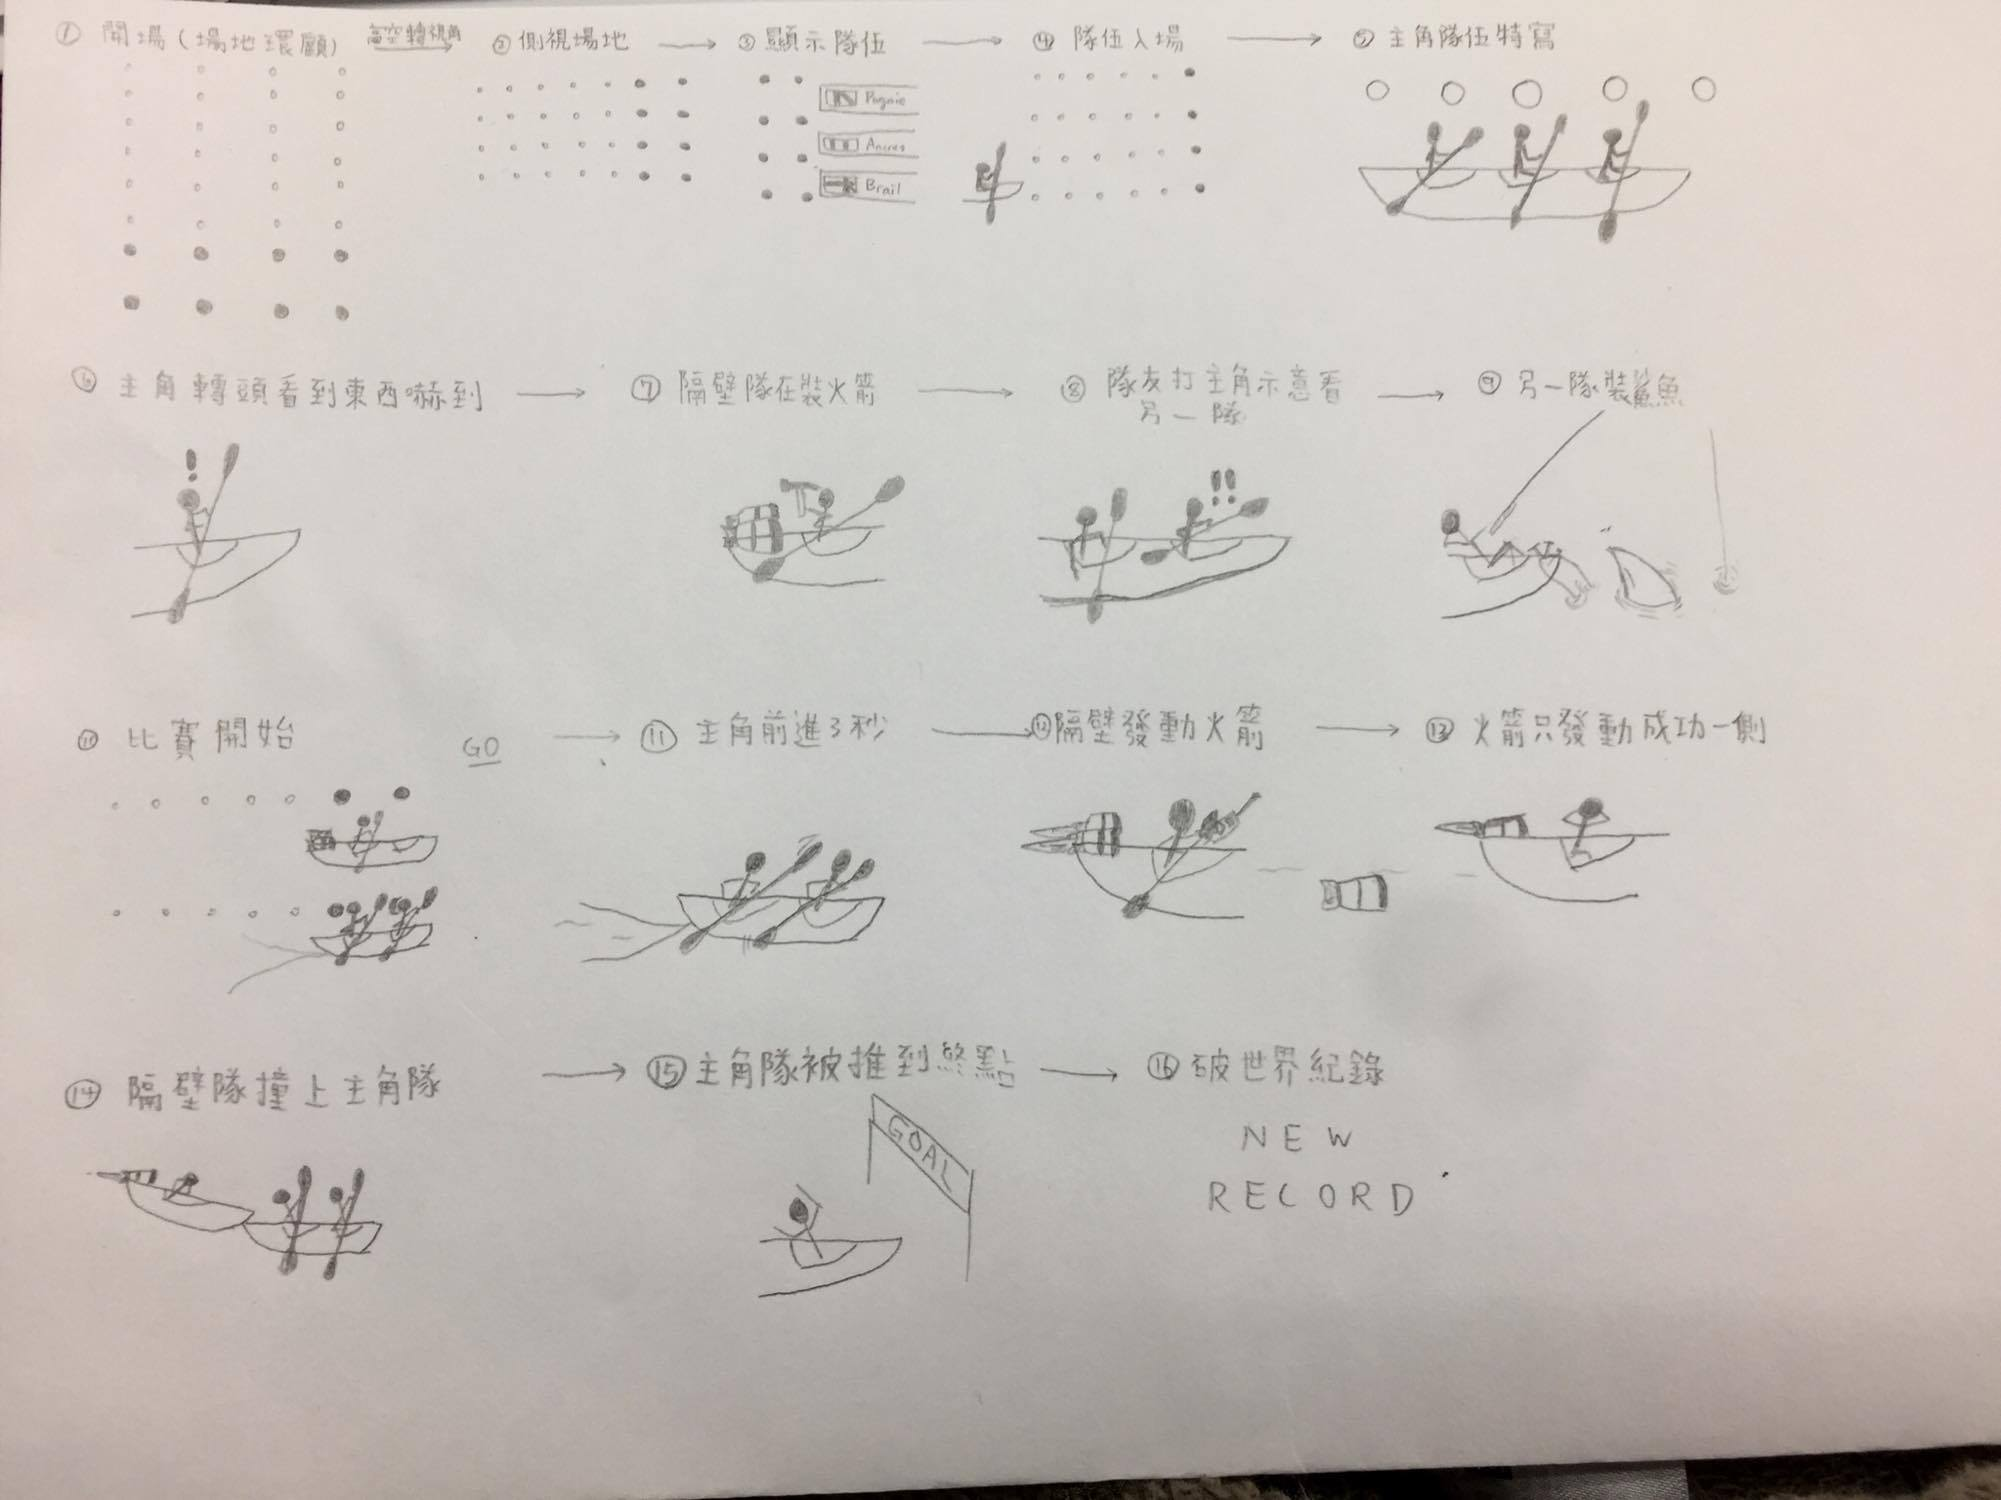 ① 開場（場地環顧） 高空轉視角 ② 側視場地 ③ 顯示隊伍 ④ 隊伍入場 ⑤ 主角隊伍特寫
Brail
⑥ 主角轉頭看到東西嚇到 ⑦ 隔壁隊在裝火箭 ⑧ 隊友打主角示意看 ⑨ 另一隊裝鯊魚
另一隊
!
!!
⑩ 比賽開始 GO ⑪ 主角前進3秒 ⑫ 隔壁發動火箭 ⑬ 火箭只發動成功一側
⑭ 隔壁隊撞上主角隊 ⑮ 主角隊被推到終點 ⑯ 破世界紀錄
GOAL
NEW
RECORD